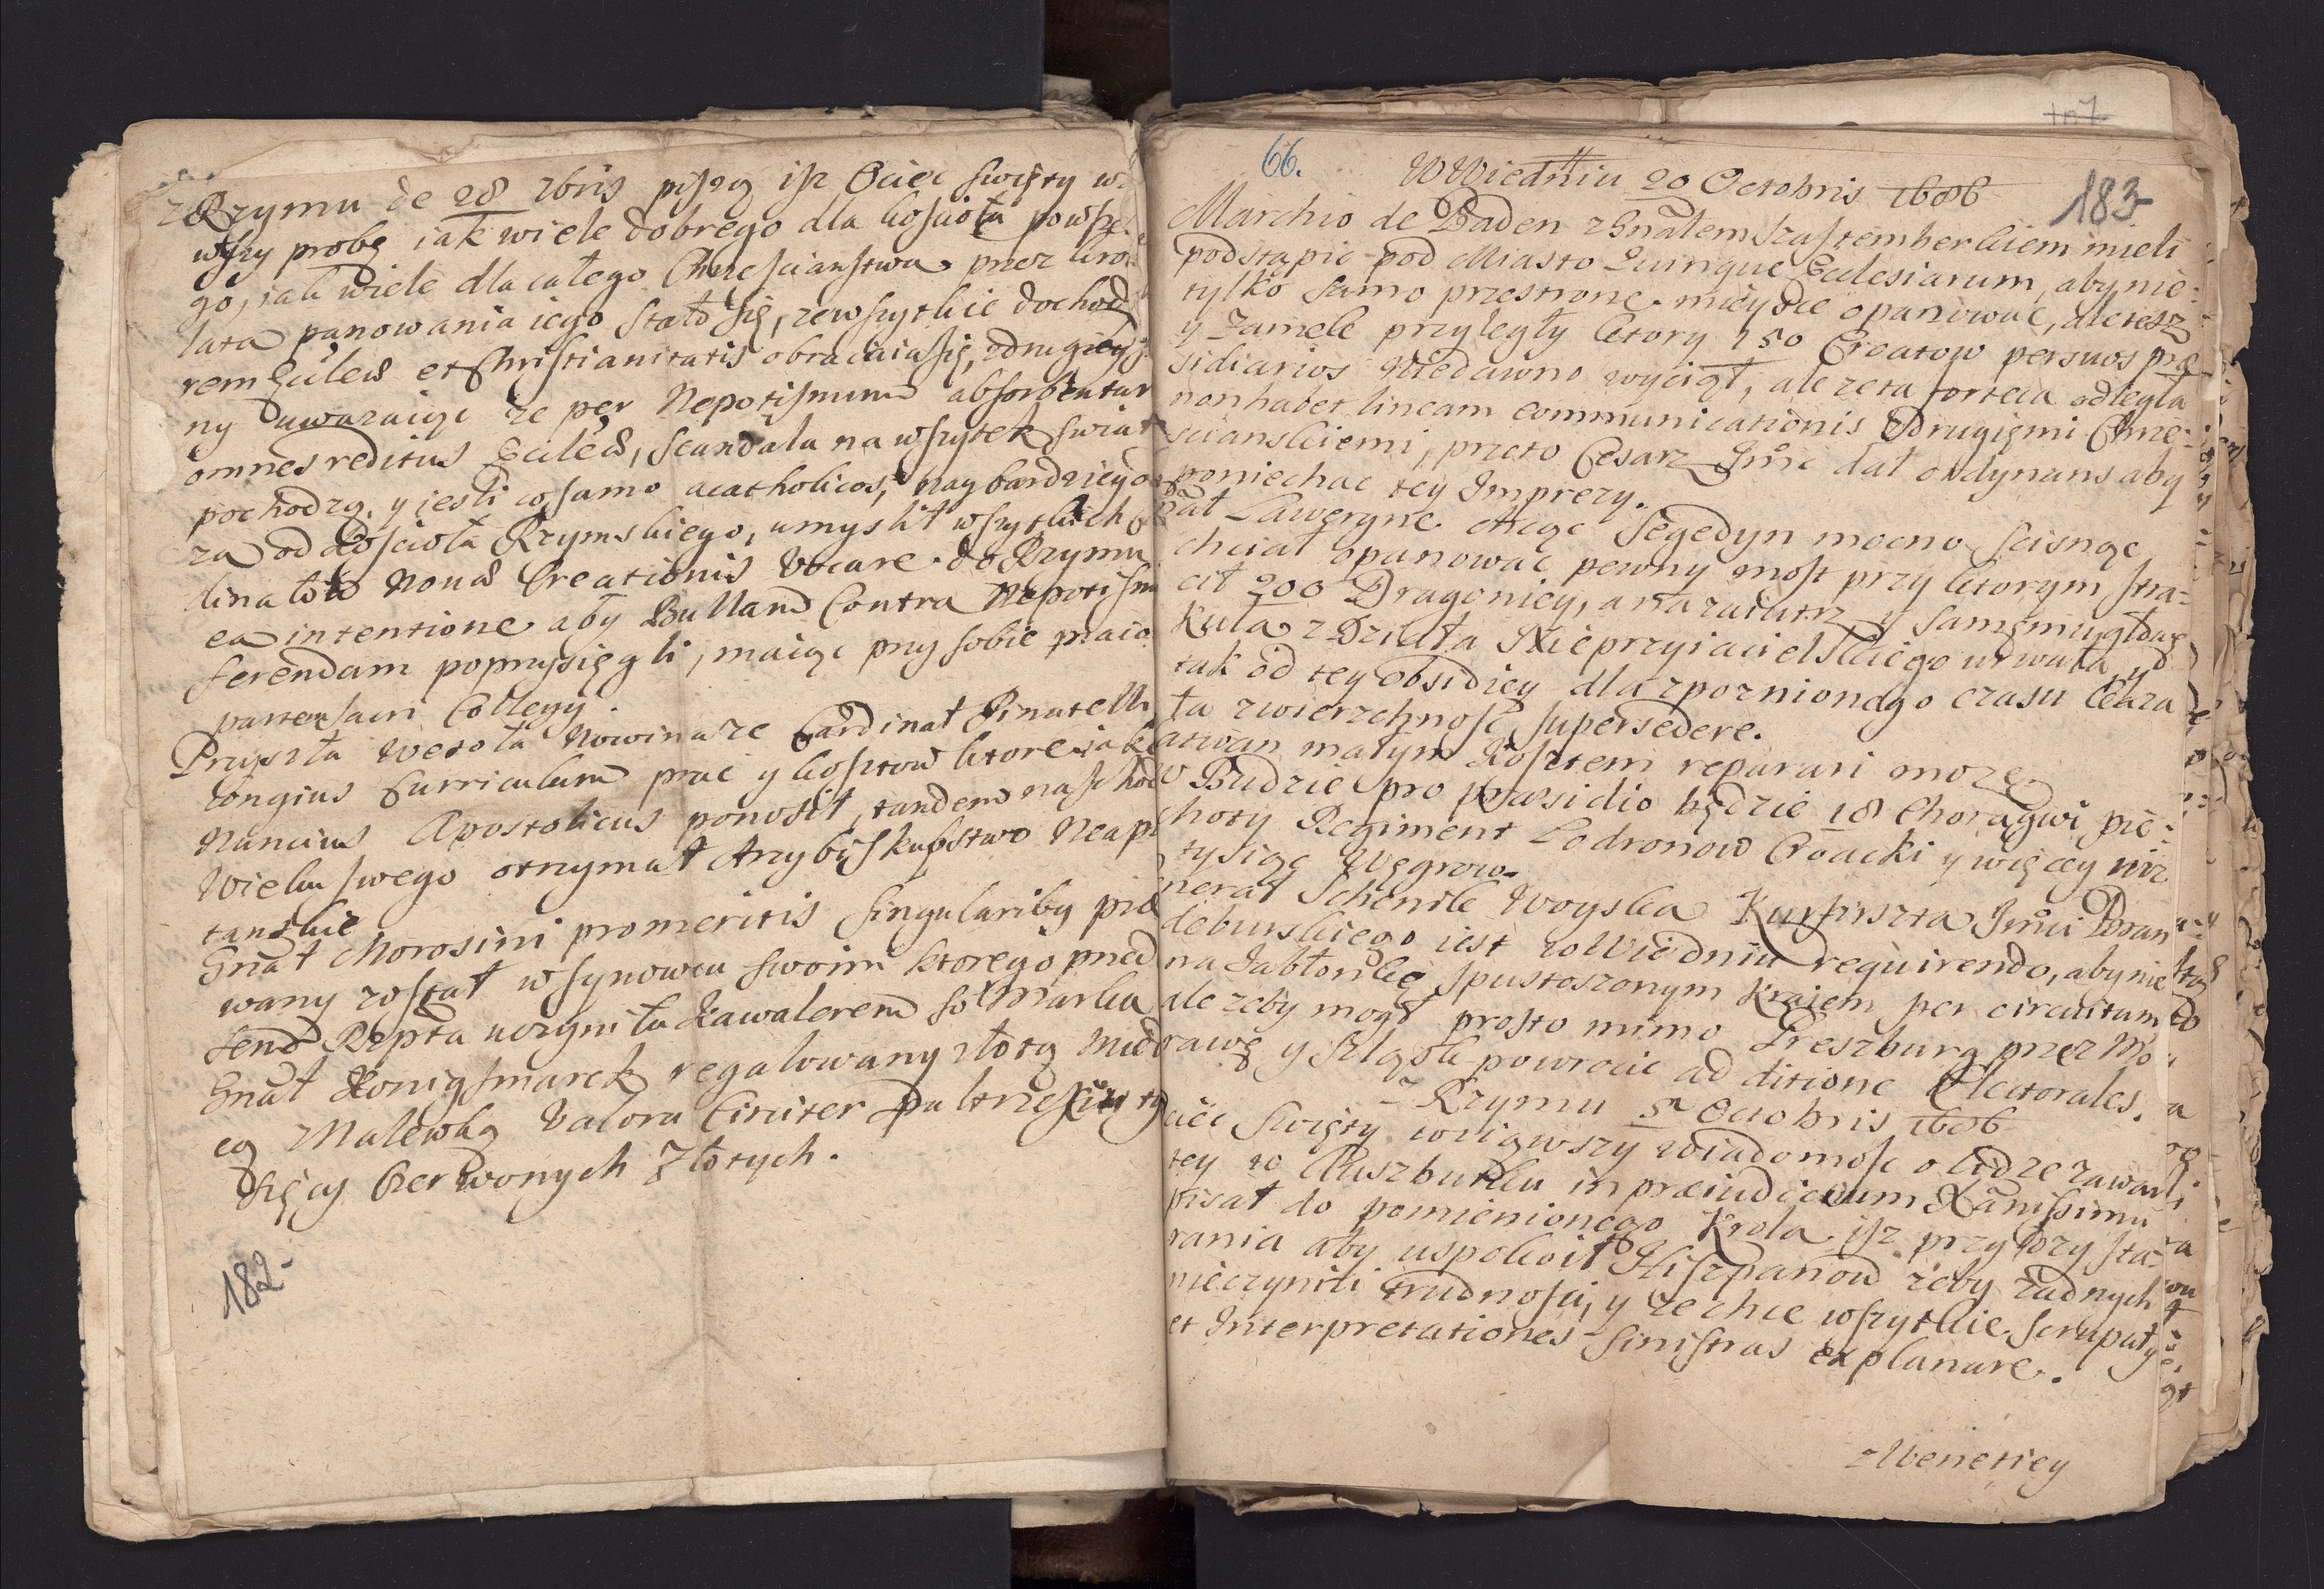 z Rzymu de 28 7bris piszą isz Ociec Swięty w
wszy probę iak wiele dobrego dla kościoła powsze
go, iak wiele dla całego Chrzescianstwa przez
lata panowania iego stało się, ze wszytkie dochod
rem Eccleæ et Christianitatis obracaia się, z drugiey
ny uwazaiąc ze per Nepotismum absorbentur
omnes reditus Eccleæ, scandala na wszytek swiat
pochodzą, y iesli co samo acatholicos, naybardziey
za od Kościoła Rzymskiego, umyslił wszytkich
dinałow Novæ Creationis vocare do Rzymu
ea intentione aby Bullam Contra Nepotism
ferendam poprzysięgli, maiąc przy sobie
partem sacri Collegy.
Przyszła wesoła Nowina ze Cardinał Pinatelli
longius Curriculum prac y kosztow ktore iako
Nuncius Apostolicus ponosił, tandem na schod
Wieku swego otrzymał Arzybiskupstwo Neapo
tanskie
Gnał Morosini pro meritis singularibg præ
wany został w synowcu swoim ktorego przed
send Rzpta uczyniła Kawalerem So Marka
Gnał Konigsmarek regalowany złotą Med
eą Malewką Valoru Circiter pultrzecia ty
sięcy Czerwonych Złotych.
182-
66.
183
W Wiedniu 20 Octobris 1686
Marchio de Baden z Gnałem Szaftemberkiem mieli
podstąpic pod Miasto Quinque Ecclesiarum, aby nie
tylko samo przestrone mieysce opanować, ale tesz
y Zamek przyległy ktory 150 Croatow per suos præ
sidiarios niedawno wyciął, ale ze ta forteca odległa
non habet lineam communicationis z drugięmi Chrze
scianskiemi, przeto Cesarz Jmc dał ordynans aby
poniechac tey Imprezy.
nał Lawergne chcąc Segedyn mocno scisnąc
chciał opanować pewny most przy ktorym stra
cił 200 Dragoniey, a na zaiutrz y samęmu głowę
Kula z Działa Nieprzyiacielskiego urwała, y
tak od tey obsidiey dla zpoznionego czasu kaza
ła zwierzchność supersedere.
małym Kosztem reparari moze
w Budzie pro præsidio będzie 18 Choragwi pie
choty Regiment Lodronow Croacki y więcey niz
tysiąc Węgrow.
nerał Schenik Woyska Kurfirszta Jmci Bran
deburskiego iest w Wiedniu requirendo, aby nie
na Jabłonkę spustoszonym Kraiem per circuitum
ale zeby mogł prosto mimo Preszburg przez Mo
rawę y Sląsk powrocic ad ditione Electorales.
Z Rzymu 5 Octobris 1686
ciec Swięty wziąwszy wiadomość o lidze zawar
tey w Auszburku in præiudicium Xanissimu
pisał do pomienionego Krola isz przyłozy sta
rania aby uspokoił Hiszpanow zeby zadnych
nieczynili trudności, y ze chce wszytkie scrupuły
et Interpretationes sinistras explanare.
z Weneciey